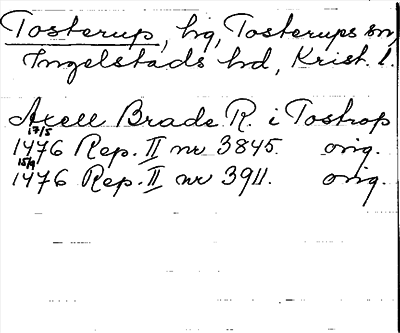 Tosterup, hg, Tosterups sn,
Ingelstads hd, Krist. l.
Axell Brade R. i Tostrop
17/5
1476 Rep. II nr 3845. orig.
15/9
1476 Rep. II nr 3911. orig.